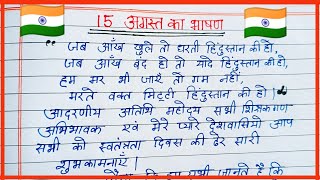 15 अगस्त का भाषण
"जब आँख खुले तो धरती हिंदुस्तान की हो,
जब आँख बंद हो तो यादें हिंदुस्तान की हो,
हम मर भी जाएँ तो गम नहीं,
मरते वक्त मिट्टी हिंदुस्तान की हो।"
आदरणीय अतिथि महोदय सभी शिक्षकगण
अभिभावक एवं मेरे प्यारे देशवासियों आप
सभी को स्वतंत्रता दिवस की ढेर सारी
शुभकामनाएँ।
कि हम सभी जानते हैं कि